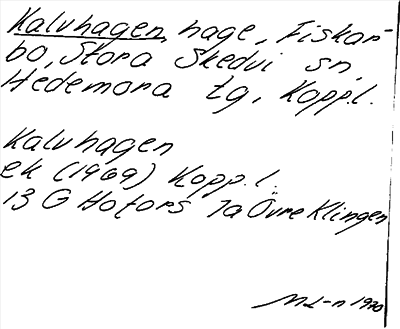 Kalvhagen, hage, Fiskar-
bo, Stora Skedvi sn,
Hedemora tg, Koppl.
Kalvhagen
ek (1969) Kopp.l.
13 G Hofors 7a Övre Klingen
ML-n 1970